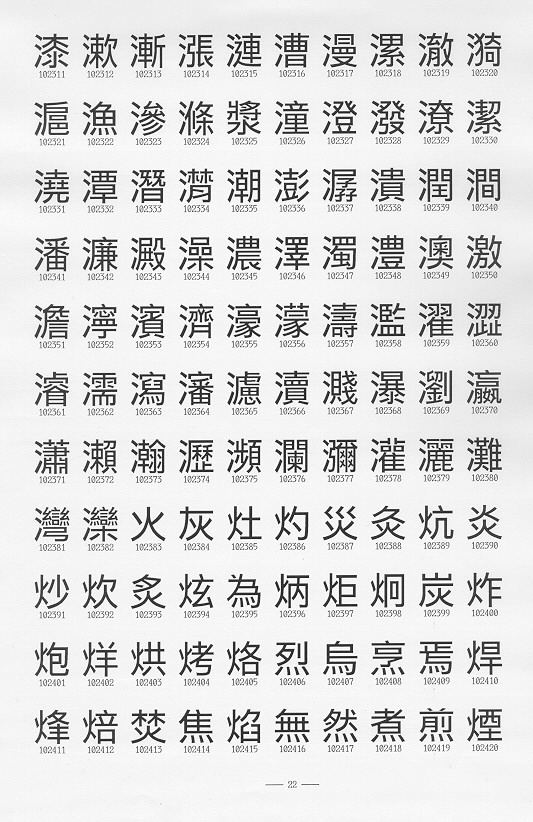 漆 漱 漸 漲 漣 漕 漫 漯 澈 漪
102311 102312 102313 102314 102315 102316 102317 102318 102319 102320
滬 漁 滲 滌 漿 潼 澄 潑 潦 潔
102321 102322 102323 102324 102325 102326 102327 102328 102329 102330
澆 潭 潛 潸 潮 澎 潺 潰 潤 澗
102331 102332 102333 102334 102335 102336 102337 102338 102339 102340
潘 濂 澱 澡 濃 澤 濁 澧 澳 激
102341 102342 102343 102344 102345 102346 102347 102348 102349 102350
澹 濘 濱 濟 濠 濛 濤 濫 濯 澀
102351 102352 102353 102354 102355 102356 102357 102358 102359 102360
濬 濡 瀉 瀋 濾 瀆 濺 瀑 瀏 瀛
102361 102362 102363 102364 102365 102366 102367 102368 102369 102370
瀟 瀨 瀚 瀝 瀕 瀾 瀰 灌 灑 灘
102371 102372 102373 102374 102375 102376 102377 102378 102379 102380
灣 灤 火 灰 灶 灼 災 灸 炕 炎
102381 102382 102383 102384 102385 102386 102387 102388 102389 102390
炒 炊 炙 炫 為 炳 炬 炯 炭 炸
102391 102392 102393 102394 102395 102396 102397 102398 102399 102400
炮 烊 烘 烤 烙 烈 烏 烹 焉 焊
102401 102402 102403 102404 102405 102406 102407 102408 102409 102410
烽 焙 焚 焦 焰 無 然 煮 煎 煙
102411 102412 102413 102414 102415 102416 102417 102418 102419 102420
— 22 —